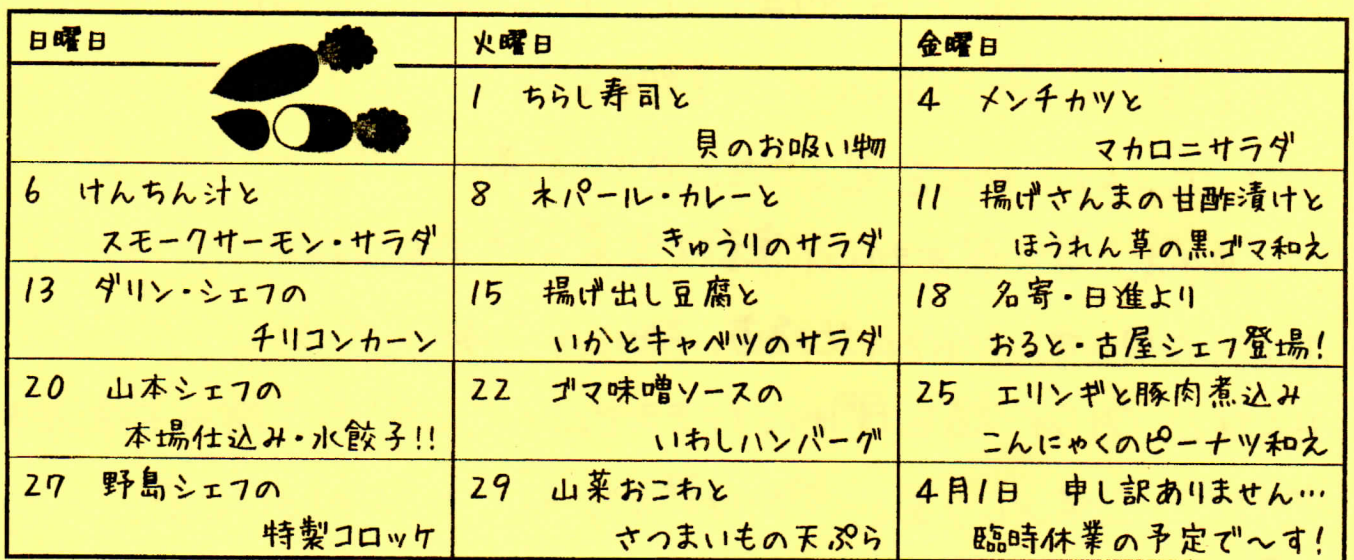 日曜日
火曜日
金曜日
1 ちらし寿司と
貝のお吸い物
4 メンチカツと
マカロニサラダ
6 けんちん汁と
スモークサーモン・サラダ
8 ネパール・カレーと
きゅうりのサラダ
11 揚げさんまの甘酢漬けと
ほうれん草の黒ゴマ和え
13 ダリン・シェフの
チリコンカーン
15 揚げ出し豆腐と
いかとキャベツのサラダ
18 名寄・日進より
おると・古屋シェフ登場!
20 山本シェフの
本場仕込み・水餃子!!
22 ゴマ味噌ソースの
いわしハンバーグ
25 エリンギと豚肉煮込み
こんにゃくのピーナツ和え
27 野島シェフの
特製コロッケ
29 山菜おこわと
さつまいもの天ぷら
4月1日 申し訳ありません…
臨時休業の予定で〜す!